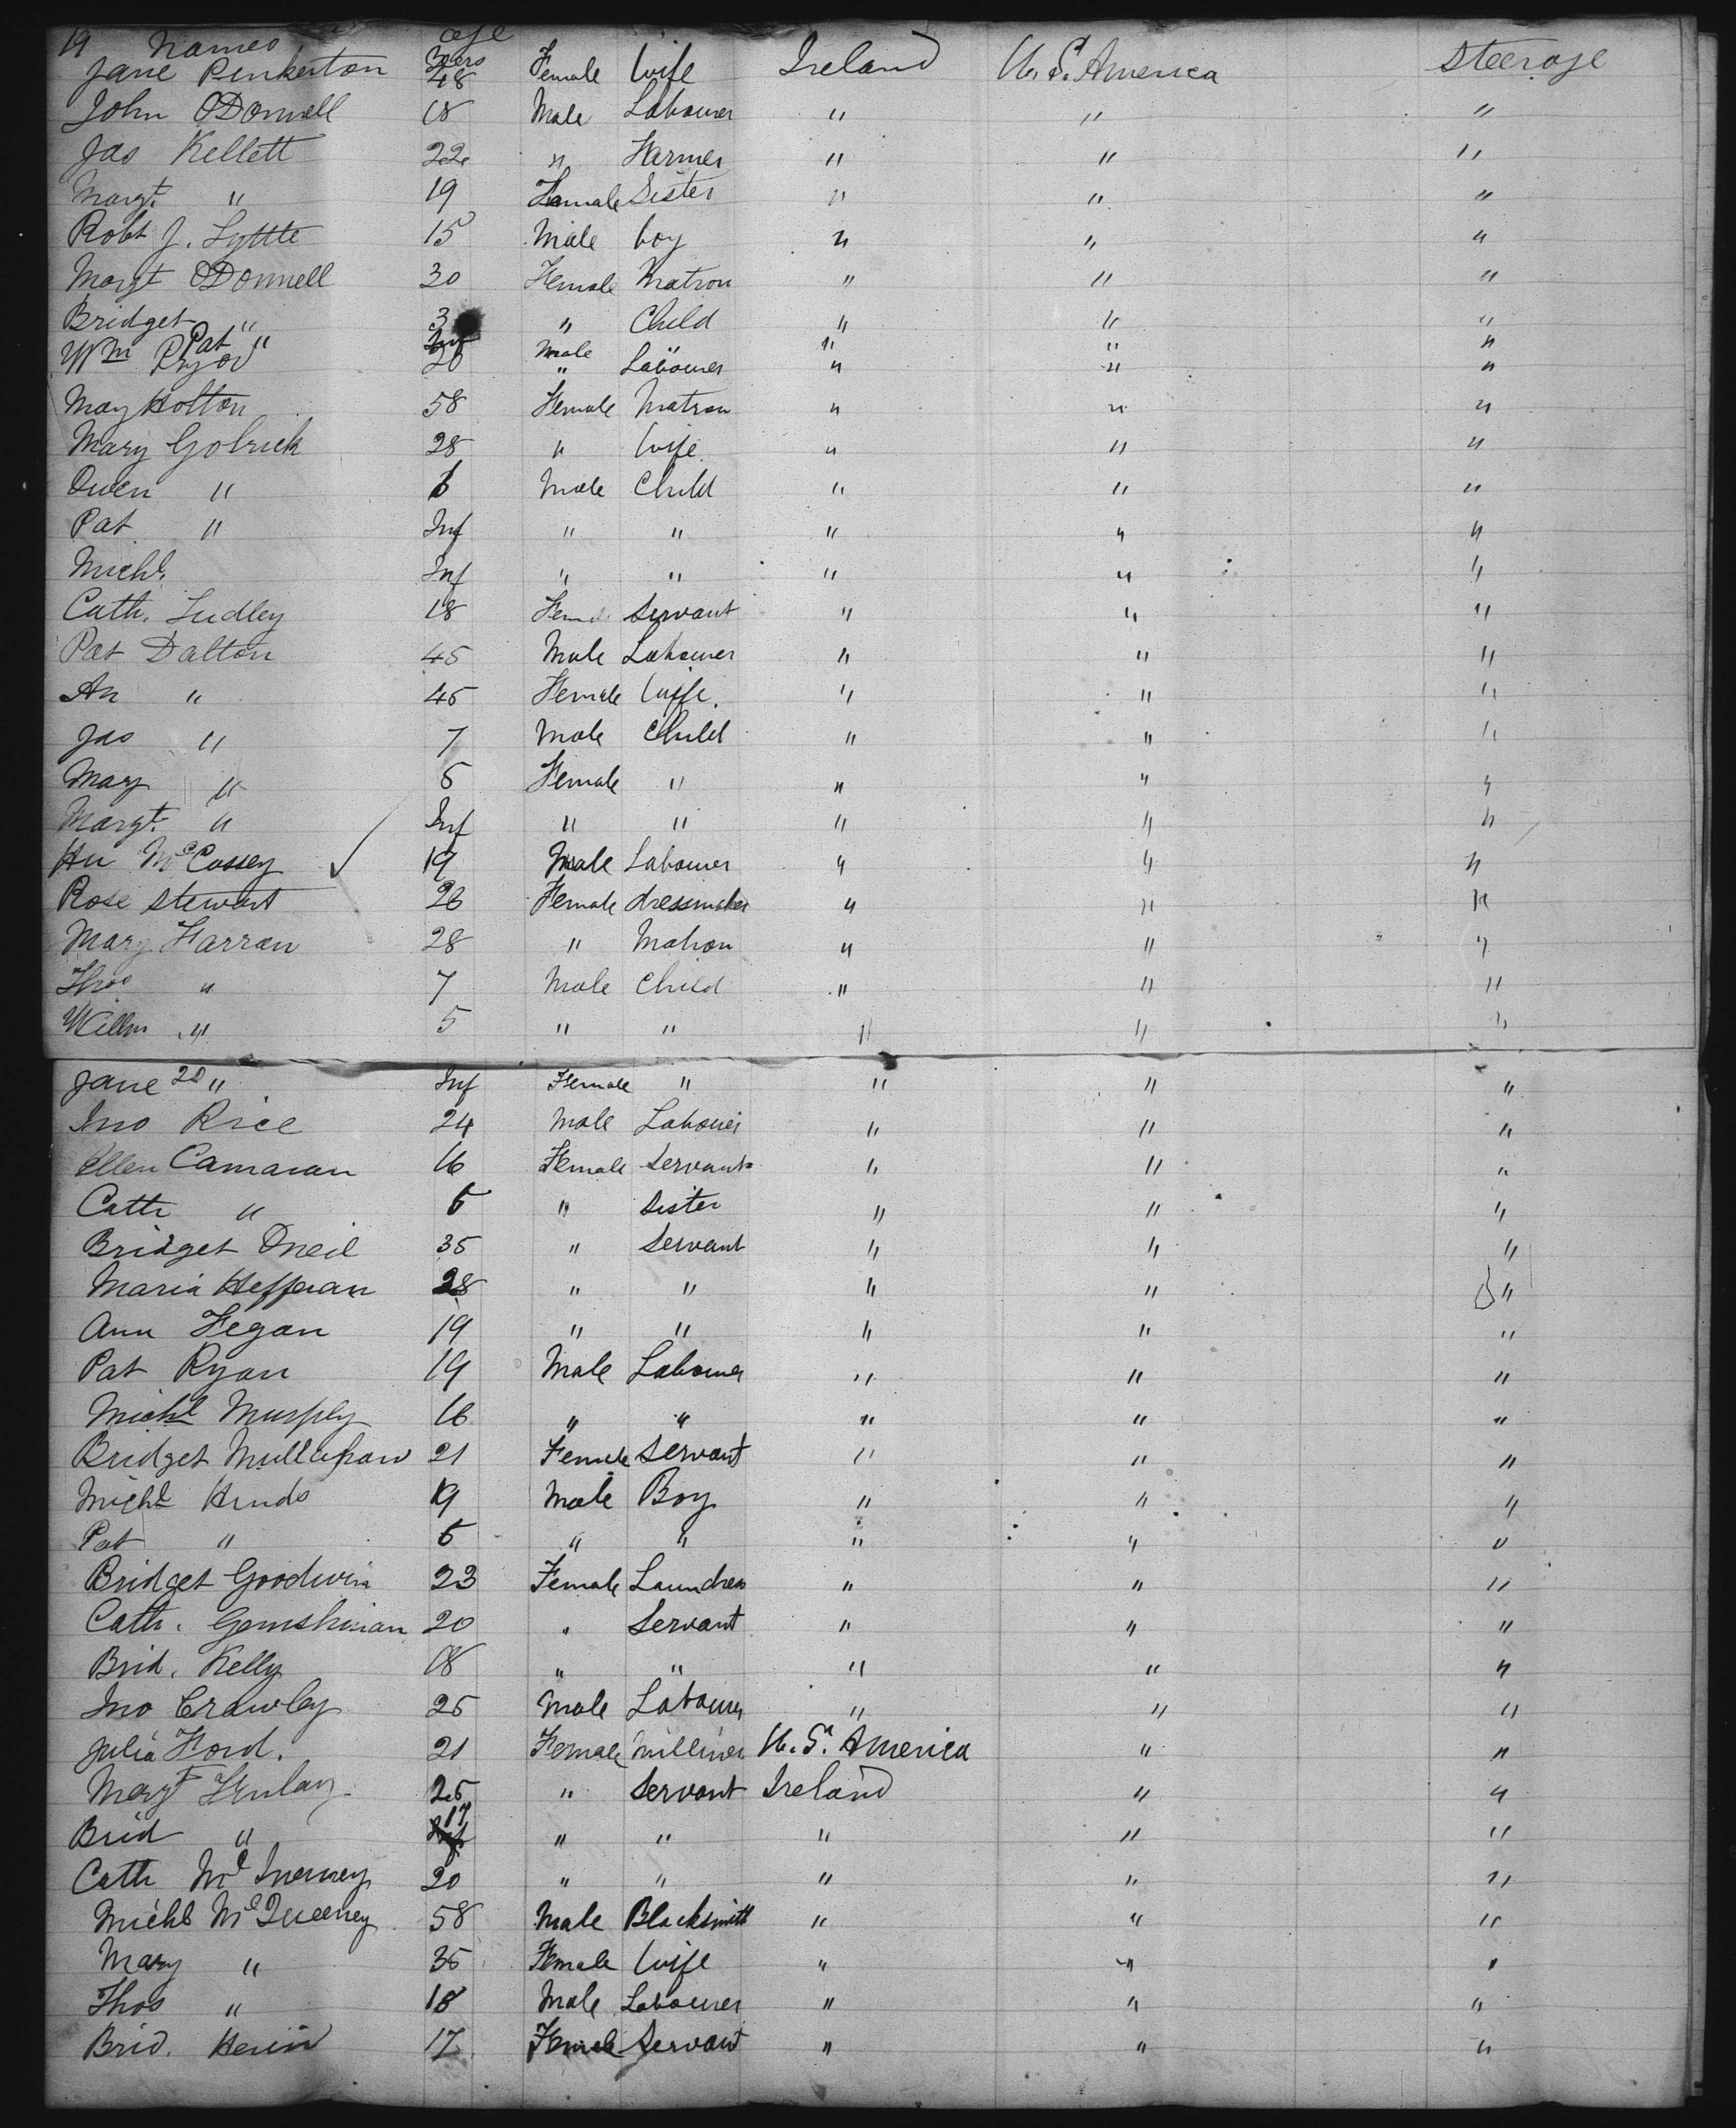 19 Names age
Jane Pinkerton Yers 48 Female Wife Ireland U.S. America Steerage
John O'Donnell 18 Male Labourer " " "
Jas Kellett 22 " Farmer " " "
Margt. " 19 Female Sister " " "
Robt J. Lyttle 15 Male boy " " "
Margt O'Donnell 30 Female Matron " " "
Bridget " 3 " Child " " "
Pat " Inf Male " " " "
Wm Pryor 20 " Labourer " " "
May Holton 58 Female Matron " " "
Mary Golrick 28 " Wife " " "
Owen " 6 Male Child " " "
Pat " Inf " " " " "
Michl. Inf " " " " "
Cath. Ludley 18 Servant " " "
Pat Dalton 45 Male Labourer " " "
An " 45 Female Wife. " " "
Jas " 7 Male Child " " "
Mary " 5 Female " " " "
Margt. " Inf " " " " "
Hu McCossey 19 Male Labourer " " "
Rose Stewart 26 Female dressmaker " " "
Mary Farran 28 " Matron " " "
Thos " 7 Male Child " " "
Willm " 5 " " " " "
20
Jane " Inf Female " " " "
Jno Rice 24 Male Labourer " " "
Ellen Camaran 16 Female Servant " " "
Cath " 5 " Sister " " "
Bridget Oneil 35 " Servant " " "
Maria Heffernan 28 " " " " "
Ann Fegan 19 " " " " "
Pat Ryan 19 Male Labourer " " "
Michl Murphy 16 " " " " "
Bridget 21 Female Servant " " "
Michl Hinds 19 Male Boy " " "
Pat " 5 " " " " "
Bridget Goodwin 23 Female Laundress " " "
Cath. 20 " Servant " " "
Brid. Kelly 18 " " " " "
Jno Crawley 25 Male Labourer " " "
Julia Ford. 21 Female Milliner U.S. America " "
Margt Finlay 25 " Servant Ireland " "
Brid " 17 " " " " "
Cath McInerney 20 " " " " "
Michl McQueeney 58 Male Blacksmith " " "
Mary " 35 Female Wife " " "
Thos " 18 Male Labourer " " "
Brid. 17 Female Servant " " "